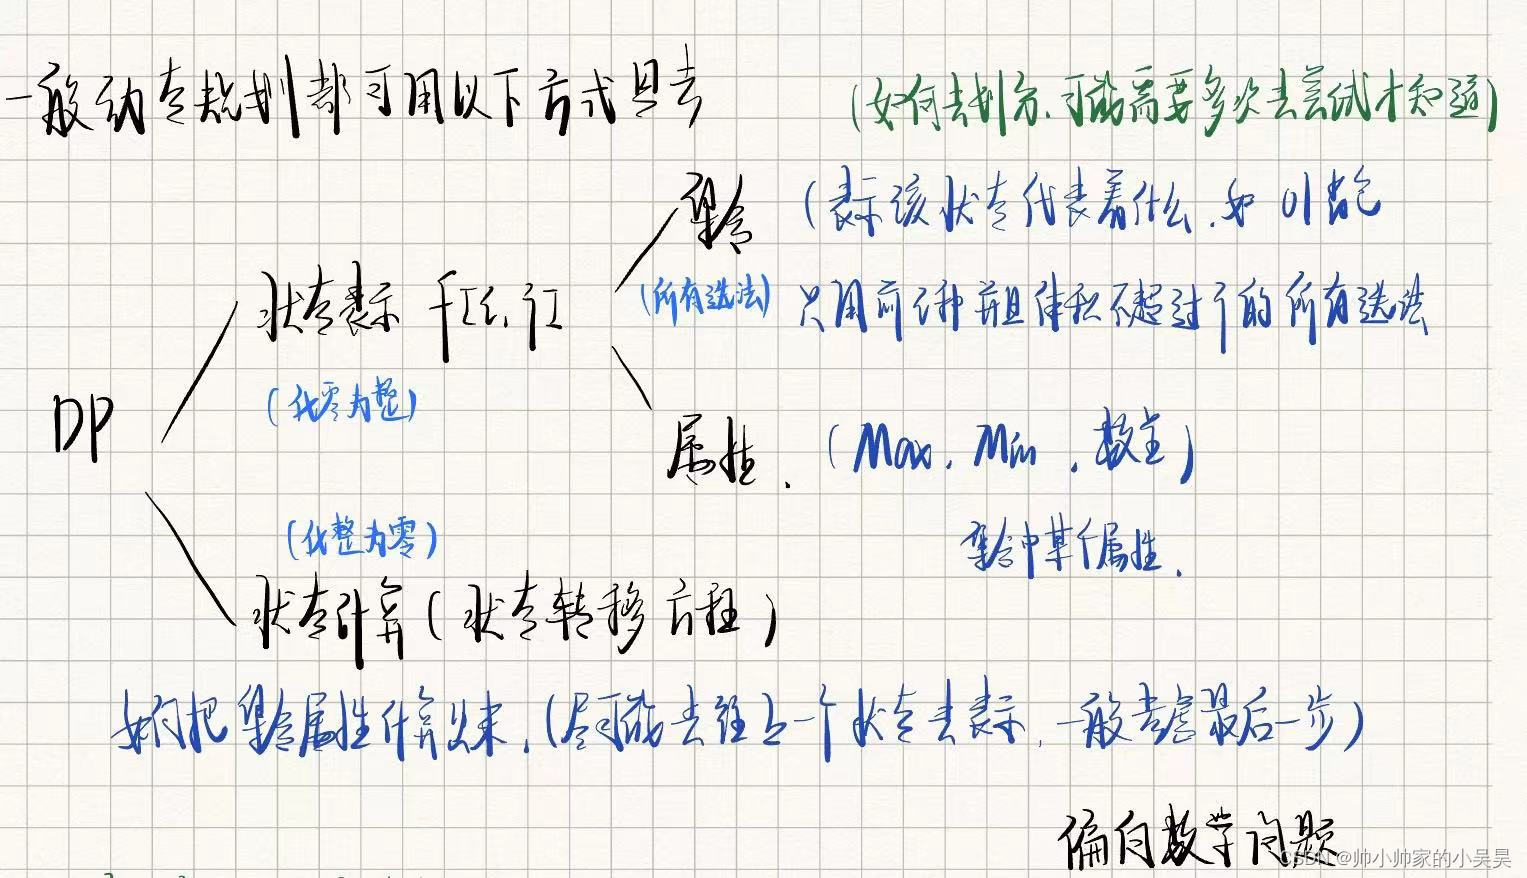 一般动态规划都可用以下方式
(如何去划分,可能需要多次去尝试才知道)
集合
(表示该状态代表着什么,如 01背包
状态表示 f[i,j]
(所有选法)
只用前i种并且体积不超过j的所有选法
(化零为整)
DP
属性.
(Max, Min, 数量)
(化整为零)
集合中某个属性.
状态计算(状态转移方程)
如何把集合属性计算出来,(尽可能去往上一个状态去表示,一般考虑最后一步)
偏向数学问题
CSDN @帅小帅家的小吴昊